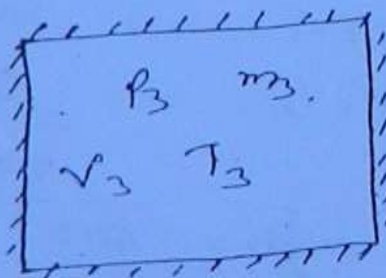 P₃ m₃.
V₃ T₃